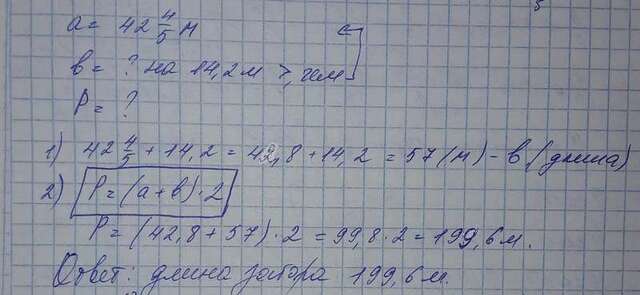 a = 42 4/5 м
в = ? на 14,2 м >, чем
P = ?
1) 42 4/5 + 14,2 = 42,8 + 14,2 = 57 (м) - в (длина)
2) P = (a + в) · 2
P = (42,8 + 57) · 2 = 99,8 · 2 = 199,6 м.
Ответ: длина забора 199,6 м.